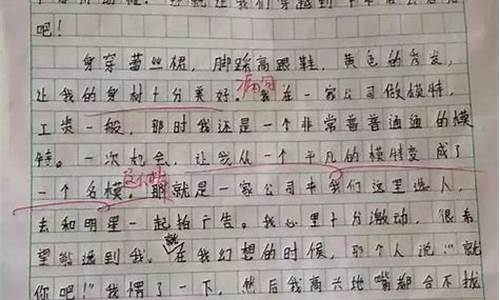 吧！
身穿蕾丝裙，脚踩高跟鞋，黄色的秀发，
让我的身材十分美好。我在一家公司做模特，
病句
工资一般，那时我还是一个非常普普通通的模
特。一次机会，让我从一个平凡的模特变成了
一个名模。那就是一家公司来我们这里选人，
去和明星一起拍广告。我心里十分激动，很希
望能选到我。就在我幻想的时候，那个人说："就
你吧！"我愣了一下，然后我高兴地嘴都合不拢